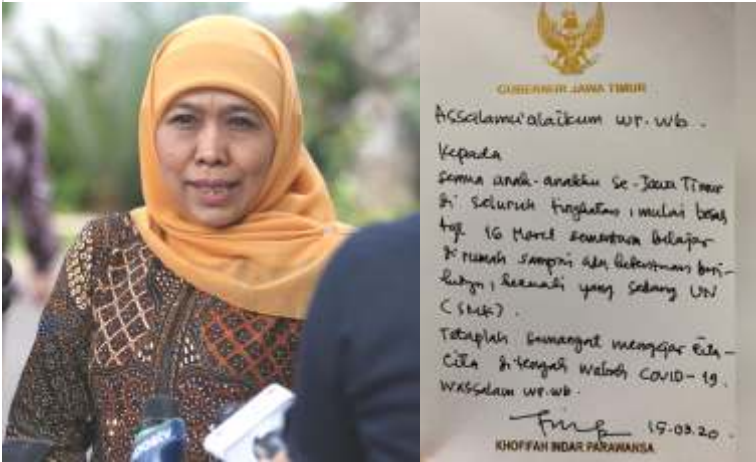 GUBERNUR JAWA TIMUR
Assalamu'alaikum wr. wb.
Kepada
semua anak-anakku se-Jawa Timur
di seluruh tingkatan, mulai besok
tgl 16 Maret sementara belajar
di rumah sampai ada ketentuan beri-
kutnya, kecuali yang sedang UN
(SMK).
Tetaplah semangat mengejar cita-
cita di tengah wabah COVID-19.
Wassalam wr. wb.
15.03.20.
KHOFIFAH INDAR PARAWANSA